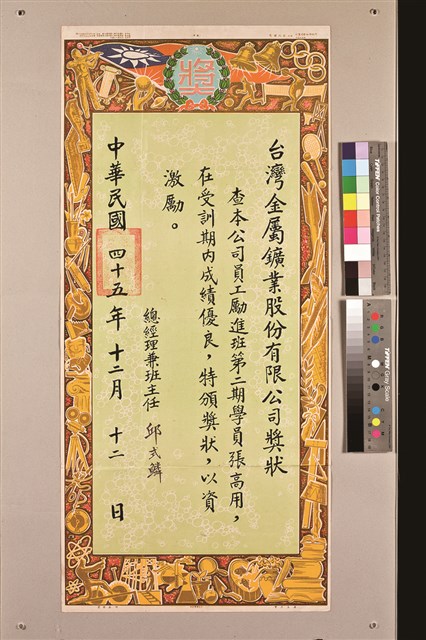 獎
台灣金屬鑛業股份有限公司獎狀
查本公司員工勵進班第二期學員張高用，
在受訓期內成績優良，特頒獎狀，以資
激勵。
總經理兼班主任 邱式麟
中華民國 四十五年 十二月 十二 日
TIFFEN Color Control Patches
TIFFEN Gray Scale